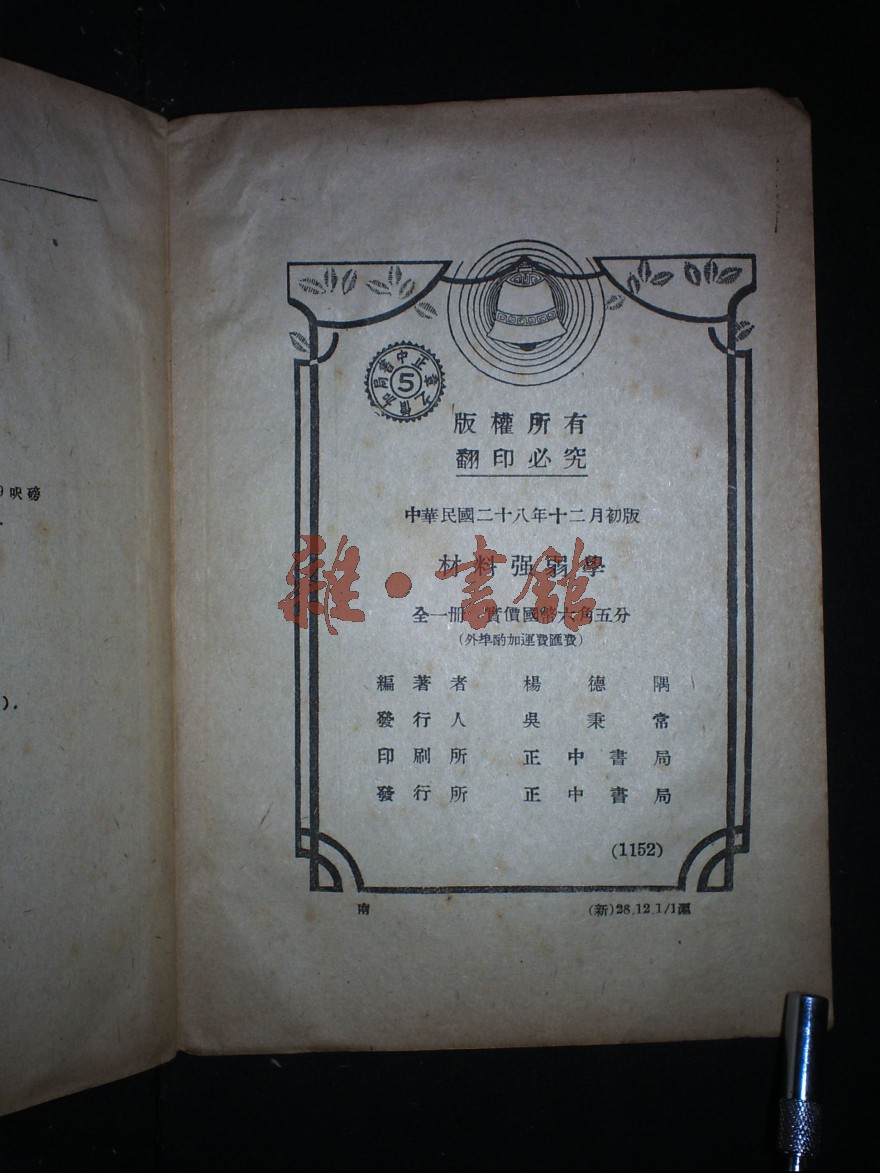 9呎磅
).
正中書局
5
版權所有
翻印必究
中華民國二十八年十二月初版
材料强弱學
全一册 實價國幣六角五分
(外埠酌加運費匯費)
編著者 楊德隅
發行人 吳秉常
印刷所 正中書局
發行所 正中書局
(1152)
南
(新)28.12.1/1滬
雜·書館